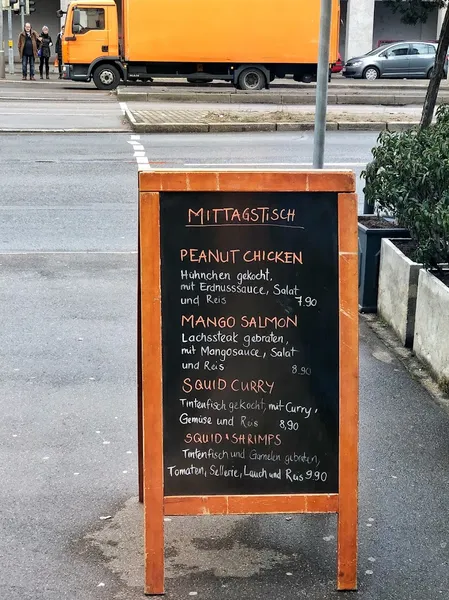 MITTAGSTISCH
PEANUT CHICKEN
Hühnchen gekocht,
mit Erdnusssauce, Salat
und Reis 7.90
MANGO SALMON
Lachssteak gebraten,
mit Mangosauce, Salat
und Reis 8.90
SQUID CURRY
Tintenfisch gekocht, mit Curry,
Gemüse und Reis 8,90
SQUID & SHRIMPS
Tintenfisch und Garnelen gebraten,
Tomaten, Sellerie, Lauch und Reis 9.90